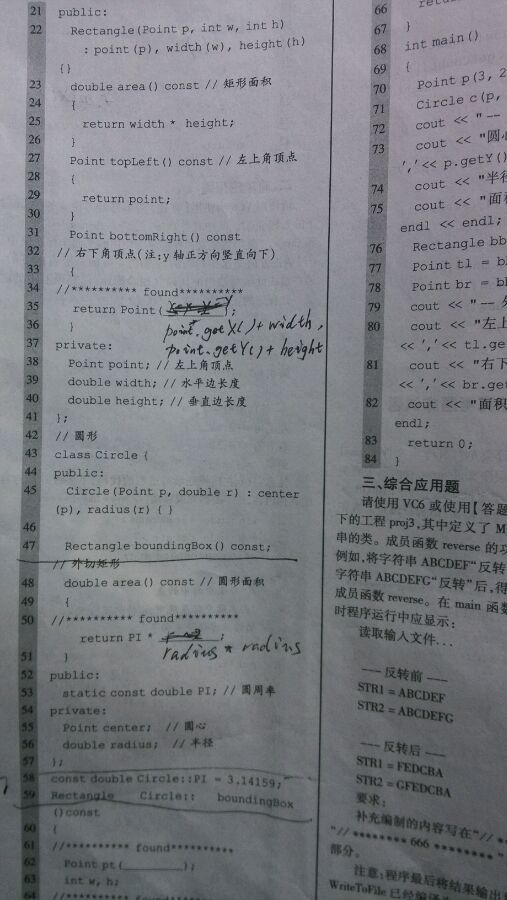 21 public:
22 Rectangle(Point p, int w, int h)
: point(p), width(w), height(h)
{}
23 double area() const // 矩形面积
24 {
25 return width * height;
26 }
27 Point topLeft() const // 左上角顶点
28 {
29 return point;
30 }
31 Point bottomRight() const
32 // 右下角顶点(注:y 轴正方向竖直向下)
33 {
34 //********** found**********
35 return Point( ;
36 } point.getX()+width,
37 private: point.getY()+height
38 Point point; // 左上角顶点
39 double width; // 水平边长度
40 double height; // 垂直边长度
41 };
42 // 圆形
43 class Circle {
44 public:
45 Circle(Point p, double r) : center
(p), radius(r) { }
46
47 Rectangle boundingBox() const;
// 外切矩形
48 double area() const // 圆形面积
49 {
50 //********** found**********
return PI * ;
51 } radius * radius
52 public:
53 static const double PI; // 圆周率
54 private:
55 Point center; // 圆心
56 double radius; // 半径
57 };
58 const double Circle::PI = 3.14159;
59 Rectangle Circle:: boundingBox
()const
60 {
61 //********** found**********
62 Point pt(________);
63 int w, h;
64 //********** found**********
66
67 }
68 int main()
69 {
70 Point p(3, 2
71 Circle c(p,
72 cout << "--
73 cout << "圆心
','<< p.getY()
74 cout << "半径
75 cout << "面积
endl << endl;
76 Rectangle bb
77 Point tl = b
78 Point br = bb
79 cout << "-- 外
80 cout << "左上
<< ',' << tl.ge
81 cout << "右下
<< ',' << br.get
82 cout << "面积
endl;
83 return 0;
84 }
三、综合应用题
请使用 VC6 或使用【答题
下的工程 proj3,其中定义了 M
串的类。成员函数 reverse 的功
例如,将字符串 ABCDEF“反转
字符串 ABCDEFG“反转”后,得
成员函数 reverse。在 main 函数
时程序运行中应显示:
读取输入文件...
--- 反转前 ---
STR1 = ABCDEF
STR2 = ABCDEFG
--- 反转后 ---
STR1 = FEDCBA
STR2 = GFEDCBA
要求:
补充编制的内容写在“// **
“// ******** 666 ********”
部分。
注意:程序最后将结果输出
WriteToFile 已经编译